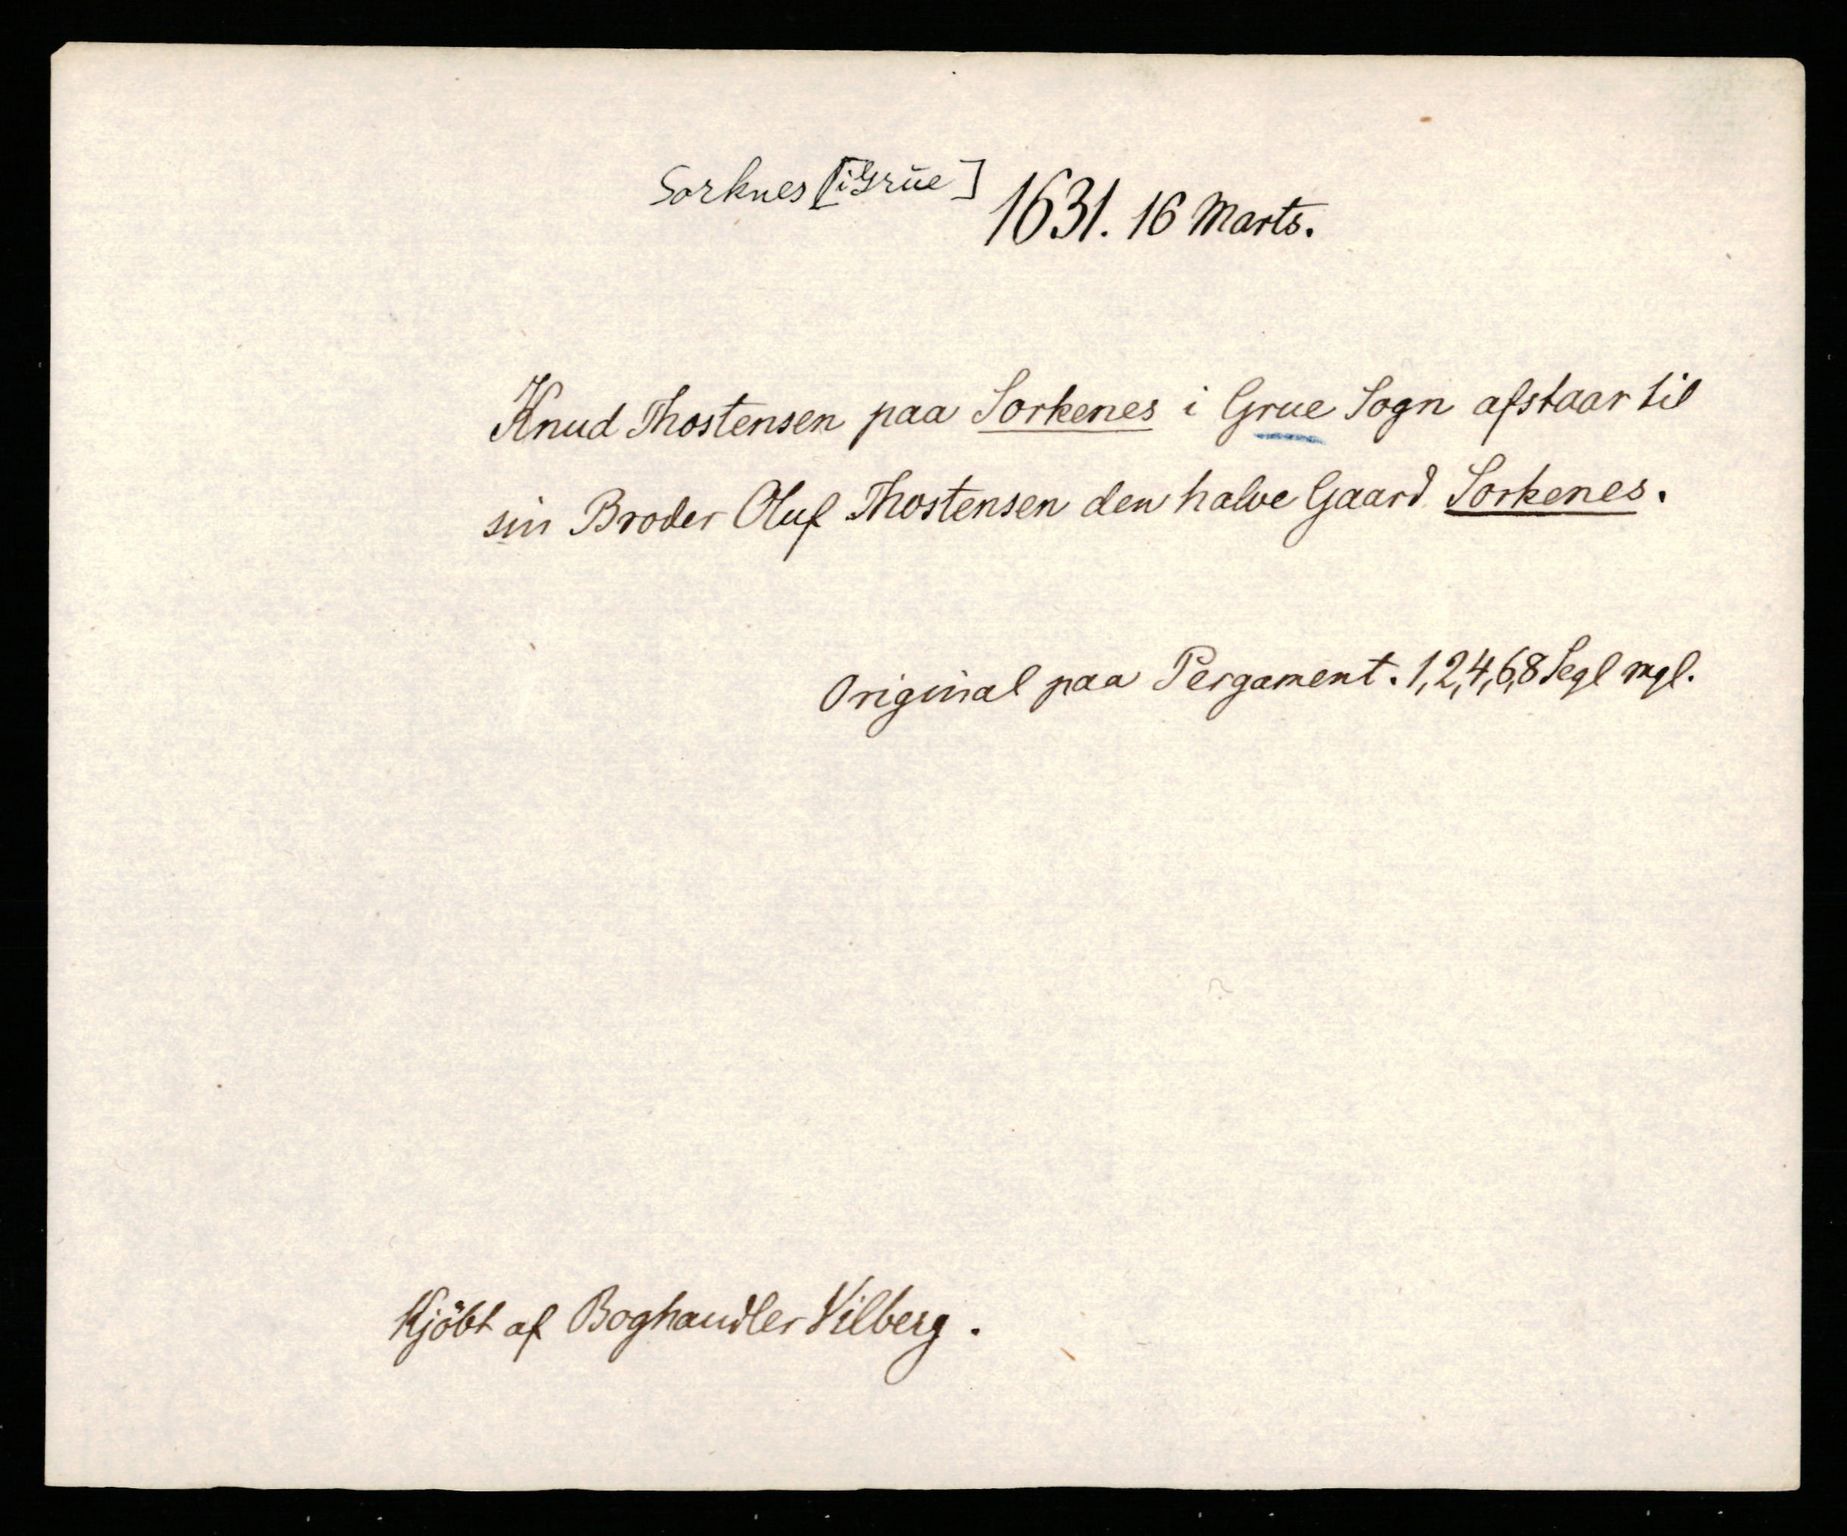 Sorknes [i Grūe] 1631. 16 Marts.
Knud Thostensen paa Sorkenes i Grue Sogn afstaar til
sin Broder Oluf Thostensen den halve Gaard Sorkenes.
Original paa Pergament. 1,2,4,6,8 Segl mgl.
Kjöbt af Boghandler Vilberg.